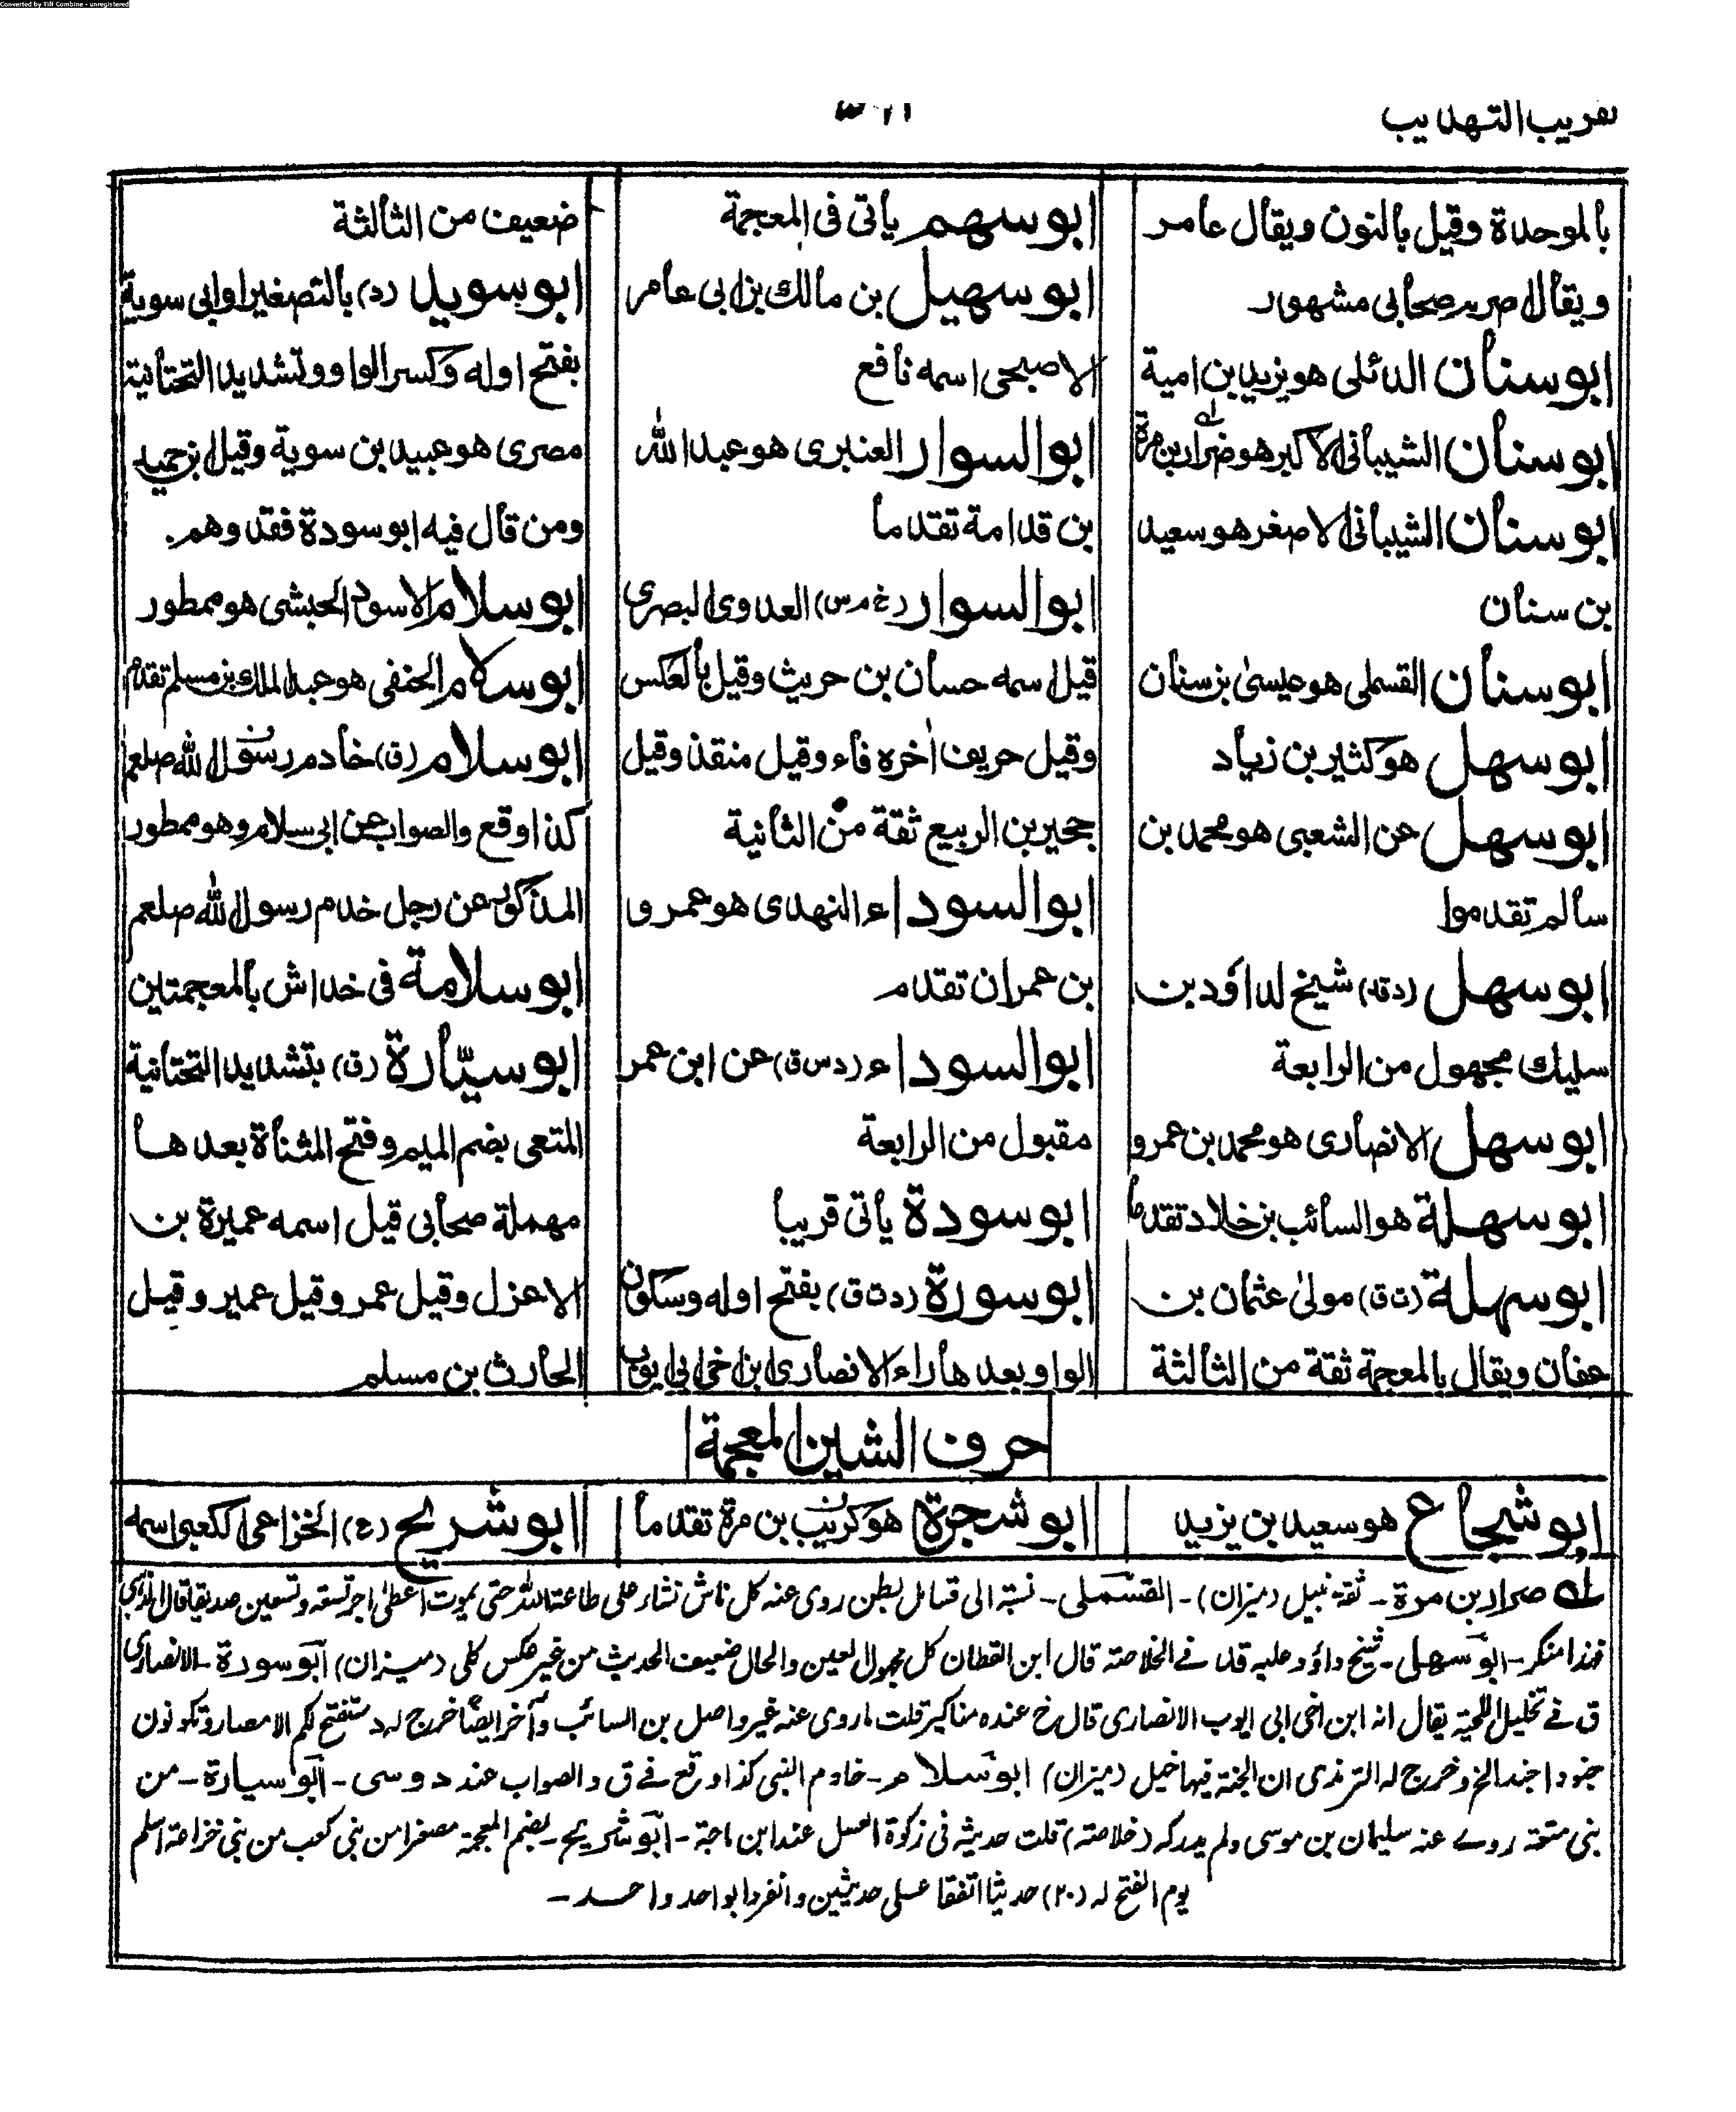 Converted by Tiff Combine - unregistered
تقريب التهذيب
بالموحدة وقيل بالنون ويقال عامر
ويقال صحابى مشهور
ابو سنان الدئلى هو يزيد بن امية
ابو سنان الشيبانى الاكبر هو ضرار بن مرة
ابو سنان الشيبانى الاصغر هو سعيد
بن سنان
ابو سنان القسملى هو عيسىٰ بن سنان
ابو سهل هو كثير بن زياد
ابو سهل عن الشعبى هو محمد بن
سالم تقدموا
ابو سهل شيخ لداؤد بن
سليك مجهول من الرابعة
ابو سهل الانصارى هو محمد بن عمرو
ابو سهلة هو السائب بن خلاد تقدما
ابو سهلة (ت ق) مولىٰ عثمان بن
عفان ويقال بالمعجمة ثقة من الثالثة
ابو سهم يأتى فى المعجمة
ابو سهيل بن مالك بن ابى عامر
الاصبحى اسمه نافع
ابو السوار العنبرى هو عبد الله
بن قدامة تقدما
ابو السوار (خ م س) العدوى البصرى
قيل سمه حسان بن حريث وقيل بالعكس
وقيل حريف اٰخره فاء وقيل منقذ وقيل
حجير بن الربيع ثقة من الثانية
ابو السوداء النهدى هو عمرو
بن عمران تقدم
ابو السوداء (د س ق) عن ابن عمر
مقبول من الرابعة
ابو سودة يأتى قريبا
ابو سورة (د ت ق) بفتح اوله وسكون
الواو بعدها راء الانصارى ابن اخى ابى ايوب
ضعيف من الثالثة
ابو سويد (د) بالتصغير او ابى سوية
بفتح اوله وكسر الواو وتشديد التحتانية
مصرى هو عبيد بن سوية وقيل بن حميد
ومن قال فيه ابو سودة فقد وهم.
ابو سلام الاسود الحبشى هو ممطور
ابو سلام الحنفى هو عبد الملك بن مسلم تقدم
ابو سلام (ق) خادم رسول الله صلعم
كذا وقع والصواب عن ابى سلام وهو ممطور
المذكور عن رجل خدم رسول الله صلعم
ابو سلامة فى خداش بالمعجمتين
ابو سيّارة (ق) بتشديد التحتانية
المتعى بضم الميم وفتح المثناة بعدها
مهملة صحابى قيل اسمه عميرة بن
الاعزل وقيل عمر وقيل عمير وقيل
الحارث بن مسلم
حرف الشين المعجمة
ابو شجاع هو سعيد بن يزيد
ابو شجرة هو كريب بن مرة تقدما
ابو شريح (ع) الخزاعى الكعبى اسمه
لـه ضرار بن مرة - ثقة نبيل (ميزان) - القسملى - نسبة الى لبطن روى عنه كل ناش نشاء على طاعة الله حتى يموت اعطى اجر تسعة وتسعين صديقا قال الذهبى
فهذا منكر - ابو سهل - شيخ داؤد فى الخلاصة قال ابن القطان كل مجهول العين والحال ضعيف الحديث من غير عكس كلى (ميزان) ابو سورة - الانصارى
ق فى تخليل اللحية يقال انه ابن اخى ابى ايوب الانصارى قال خ عنده مناكير قلت ما روى عنه غير واصل بن السائب وآخر ايضا خرج له د ستفتح لكم الامصار وتكونون
جنودا مجندا الخ وخرج له الترمذى ان الجنة فيها خيل (ميزان) ابو سلام - خادم النبى كذا وقع فى ق والصواب عند د و سى - ابو سيارة - من
بنى متعة روى عنه سليمان بن موسى ولم يدركه (خلاصة) قلت حديثه فى زكوة العسل عند ابن ماجة - ابو شريح - بضم المعجمة مصغرا من بنى كعب من بنى خزاعة اسلم
يوم الفتح له (٢٠) حديثا اتفقا على حديثين وانفردا بواحد واحد -